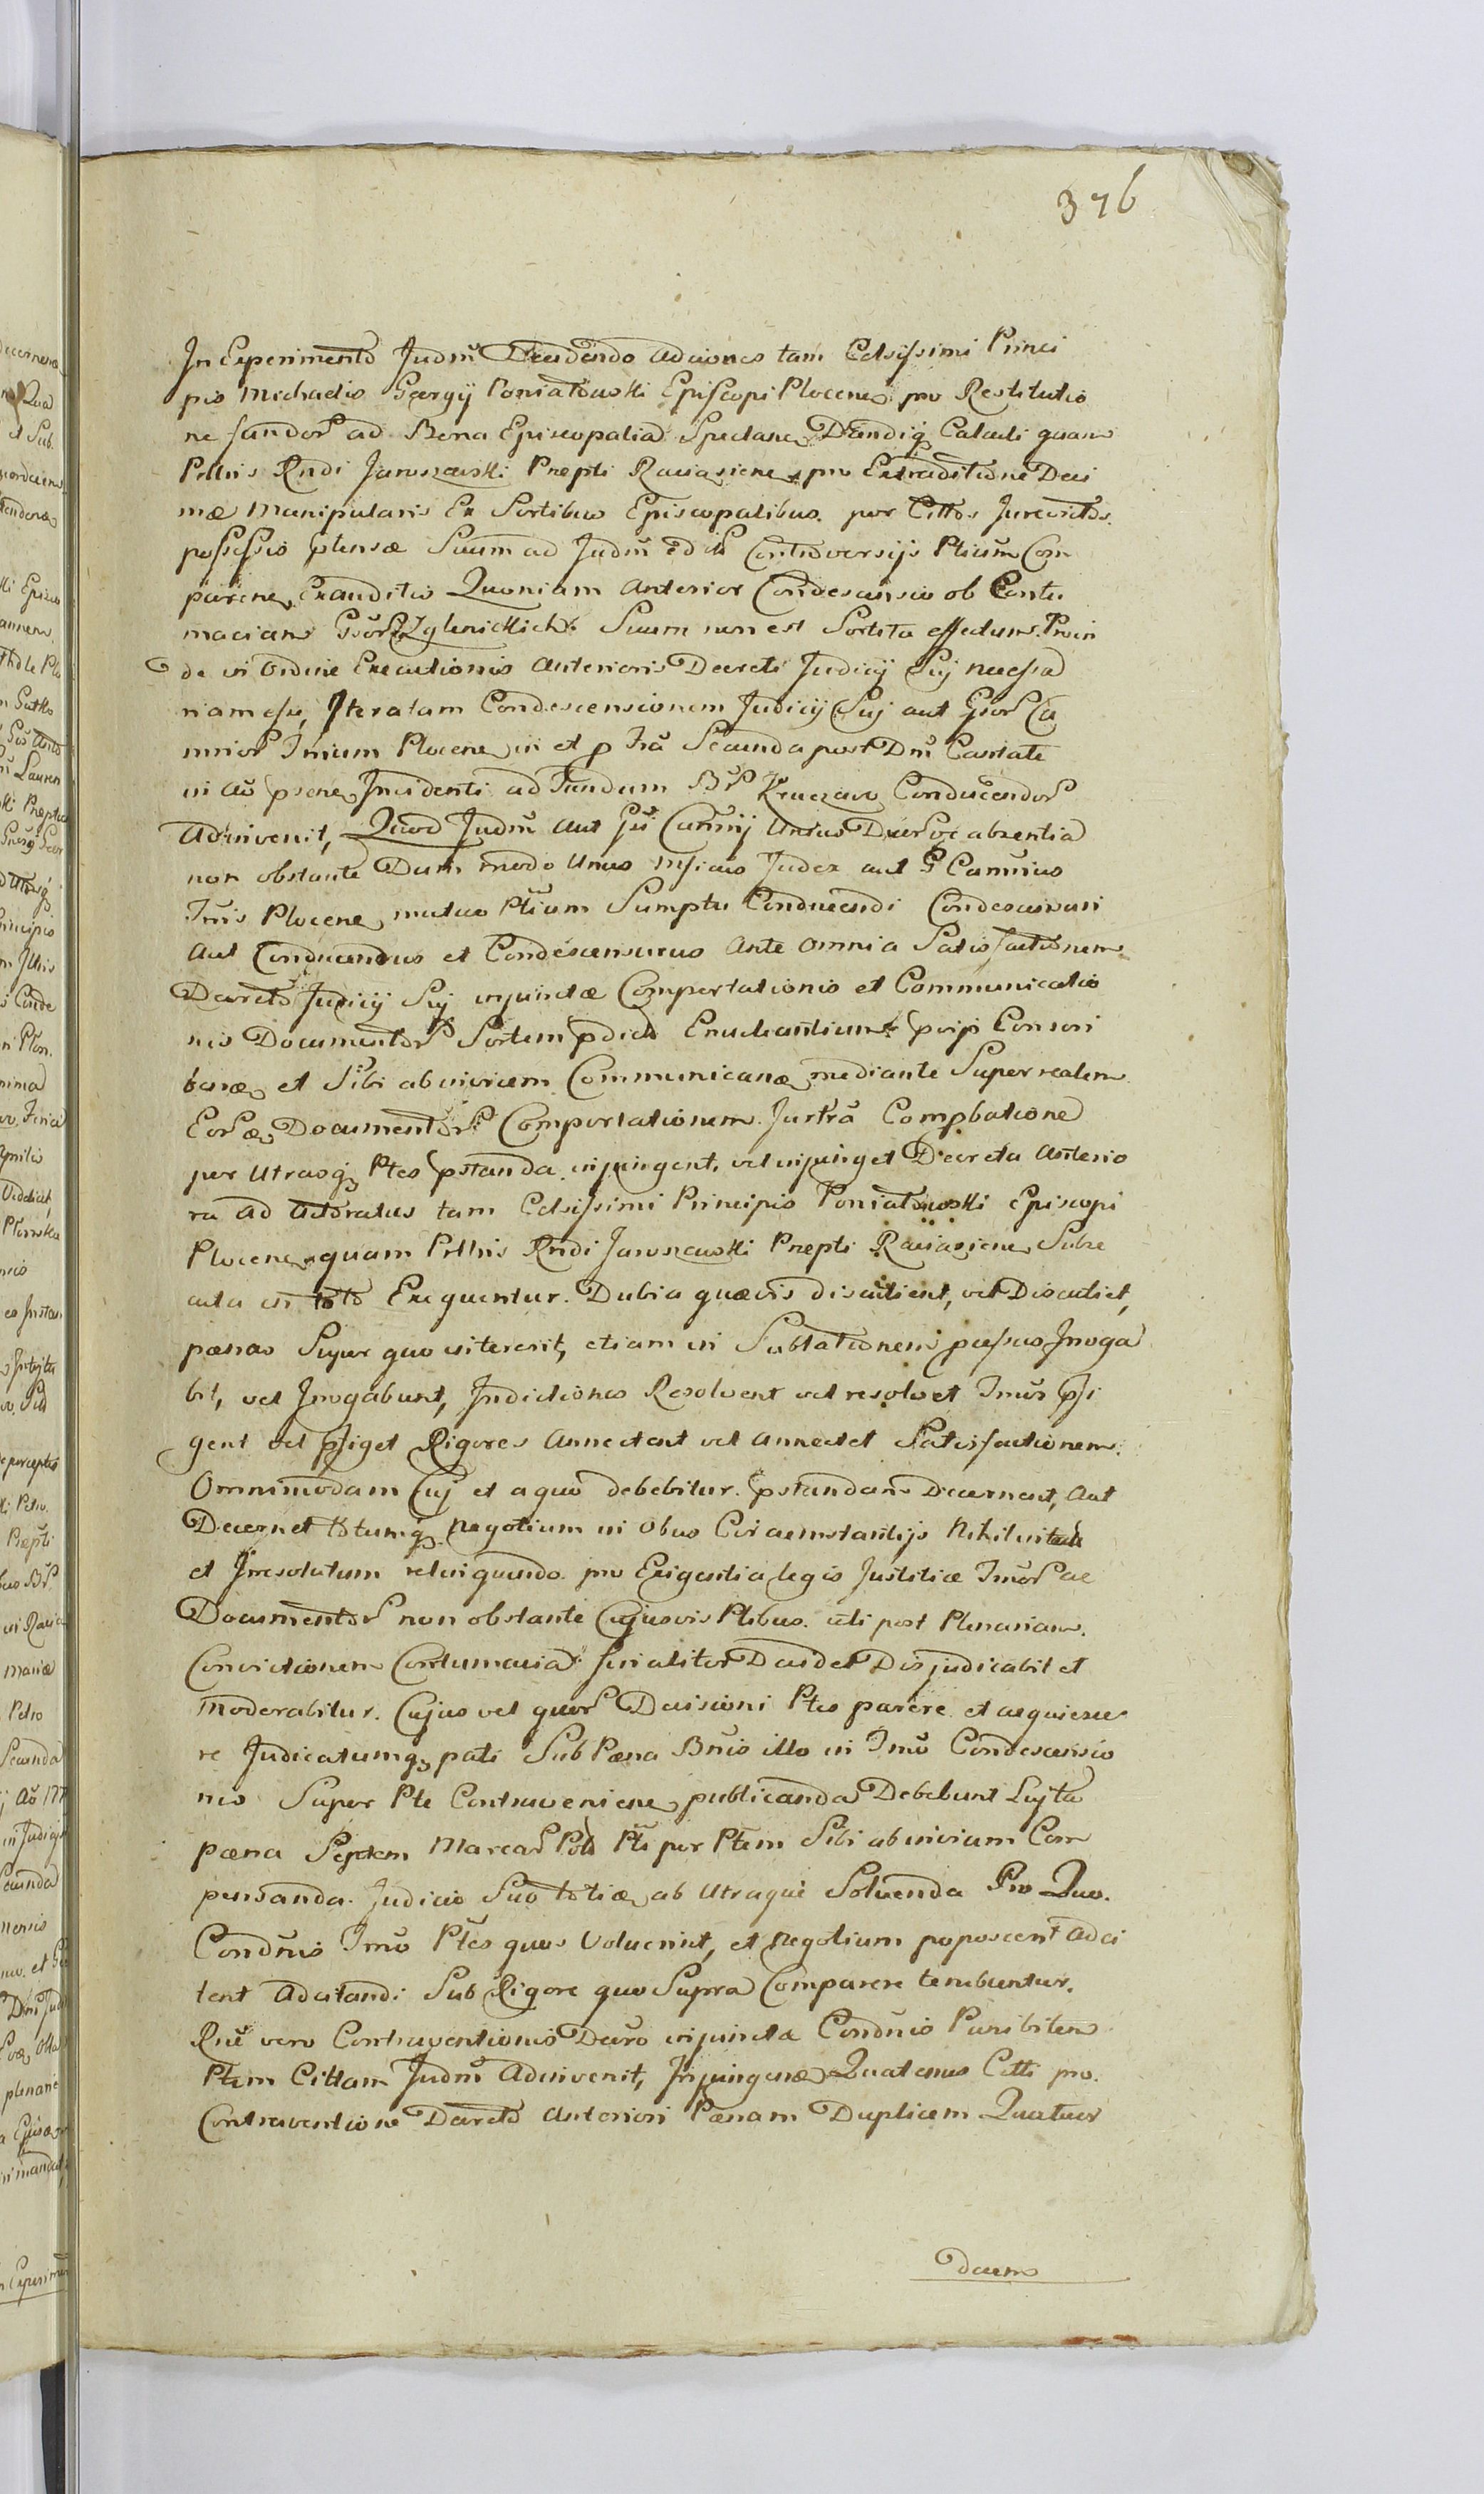 376
In Experimento Judm̃ Decidendo adciones tam Celsissimi Princi
pis Michaelis Georgij Poniatowski Episcopi Plocenẽ pro Restitutio
ne fundor ad Bona Episcopalia Spectanẽ Dandiq Calculi quam
Prllris Rndi Jaroszewski Prepti Raciązienẽ pro Extraditione Deci
mæ Manipularis Ex Sortibus Episcopalibus per Cittos Jurevictos
possessis ptensæ Suum ad Judm̃ Contraversijs Ptium Com
parenẽ Exauditis Quoniam anterior Condescensio ob Contu
maciam Gsor Zglenickich Suum non est Sortita effectum. Proin
de in ordine Executionis anterioris Decreti Judicij Sui necessa
riam esse, Iteratam Condescensionem Judicij Sui aut Gsor Ca
mrior Trrium Plocenẽ in et p Fria Secunda post Dm̃ Cantate
in aõ psenẽ Incidenti ad Fundum Br Conducendor
Adinvenit, Quod Judm̃ aut Gsi Camrij Unius absentia
non obstante Dum modo Unus Judex aut G Camrius
Trris Plocenẽ mutuo Ptium Sumptu Conducendi Condescensuri
aut Conducendus et Condescensurus ante omnia Satisfactionem
Decreto Judicij Sui injunctæ Comportationis et Communicatio
nis Documentor Sortem pdictã Enucleantium
et Sibi abinvicem Communicanæ mediante Super realem
Eor Documentor Comportationem Jurtã Compbatione
per Utrasq Ptes pstanda injungent, vel injunget Decreta anterio
ra ad actoratus tam Celsissimi Principis Poniatowski Episcopi
Plocenẽ quam Prllris Rndi Jaroszewski Prepti Raciązienẽ Subse
cuta in toto Exequentur. Dubia quævis discutient, vel Discutiet,
pænas Super quo intererit, etiam in Sublationem passus Irroga
bit, vel Irrogabunt, Indictiones Resolvent vel resolvet Tmũs psi
gent vel psiget Rigores Annectent vel annectet Satisfactionem
Omnimodam Cuj et a quo debebitur pstandam Decernent, Aut
Decernet totumq negotium in obus Circumstantijs Nihil
et Irresolutum relinquendo pro Exigentia legis Justitiæ Tmor ac
Documentor non obstante Cujusvis Ptibus uti post Plenariam
Convictionem Contumacia finaliter Decidet Dijudicabit et
moderabitur. Cujus vel quor Decisioni Ptes parere et acquiesce
re Judicatumq pati Sub Pæna Bnis illo in Tmo Condescensio
nis Super Pte Contravenienẽ publicanda Debebunt Luita
pæna Septem Marcar Pol Pti per Ptem Sibi abinvicem Com
pensanda. Judicio Suo toties ab Utraque Solvenda Pro Quo
Condnis Tmo Ptes quos Voluerint, et negotium poposcerit adci
tent Adcitandi Sub Rigore quo Supra Comparere tenebuntur.
Rne vero Contraventionis Decro injunctæ Condnis Punibilem
Ptem Cittam Judm̃ Adinvenit, Injungenẽ Quatenus Citti pro
Contraventione Decreto anteriori Pænam Duplicem Quatuor
Decem